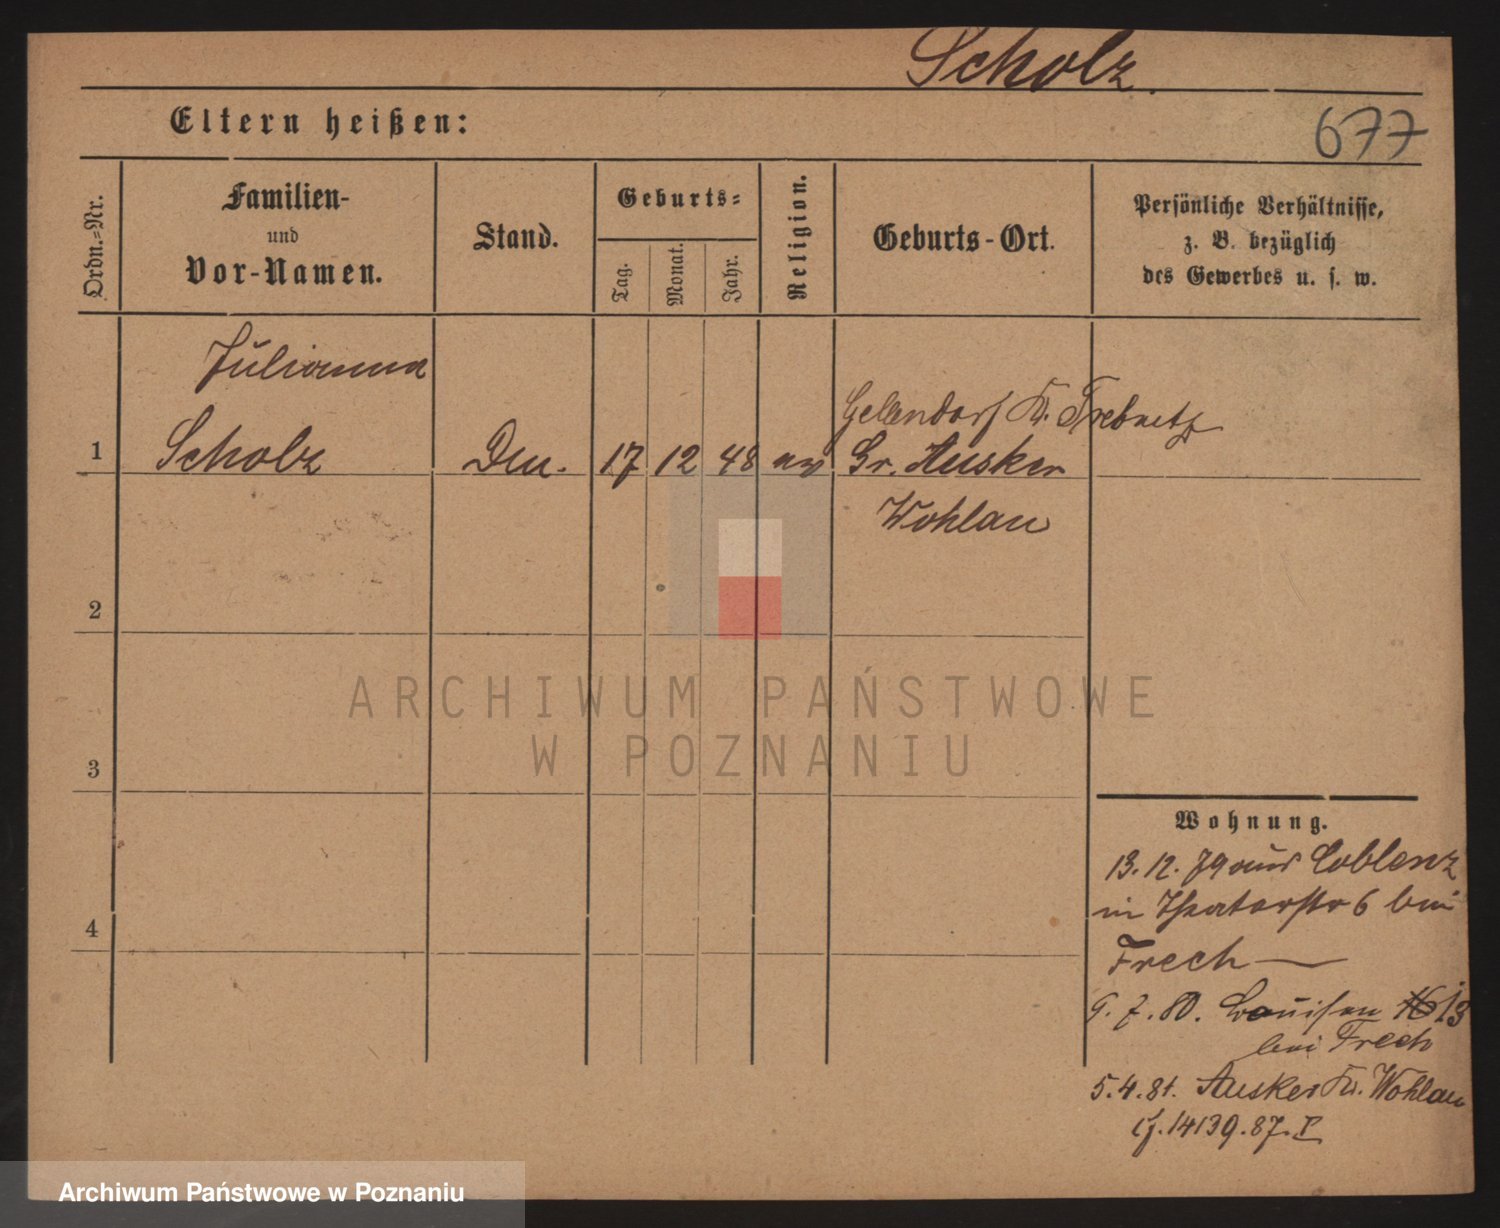 Scholz.
Eltern heißen:
677
Ordn.=Nr.
Familien-
und
Vor-Namen.
Stand.
Geburts=
Tag.
Monat.
Jahr.
Religion.
Geburts-Ort.
Persönliche Verhältnisse,
z. B. bezüglich
des Gewerbes u. s. w.
Julianna
Kr. Trebnitz
1 Scholz 17 12 48 ev Gr. Ausker
Wohlau
2
ARCHIWUM PAŃSTWOWE
W POZNANIU
3
Wohnung.
13. 12. 79 aus Coblenz
in Theaterstr 6 bei
Frech —
9. 7. 80. Louisen 13
bei Frech
4
5. 4. 81. Ausker Kr. Wohlau
14139. 87. I
Archiwum Państwowe w Poznaniu